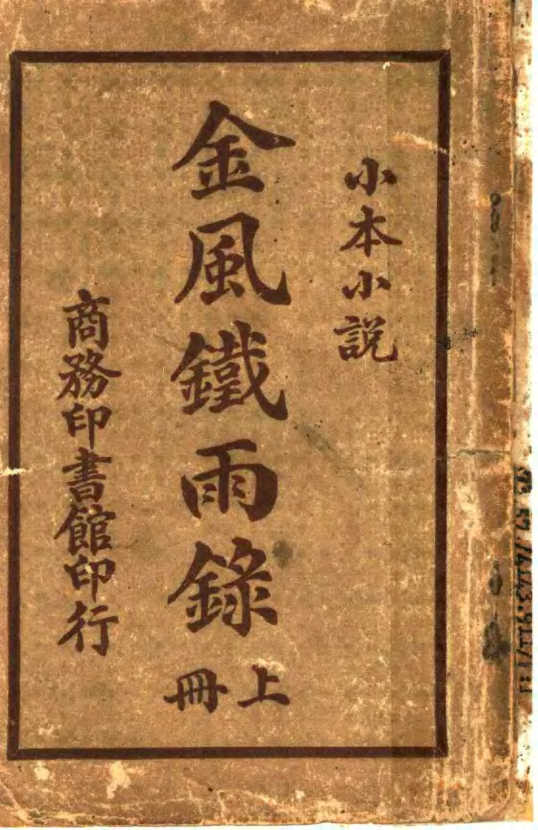 小本小説
金風鐵雨錄
上冊
商務印書館印行